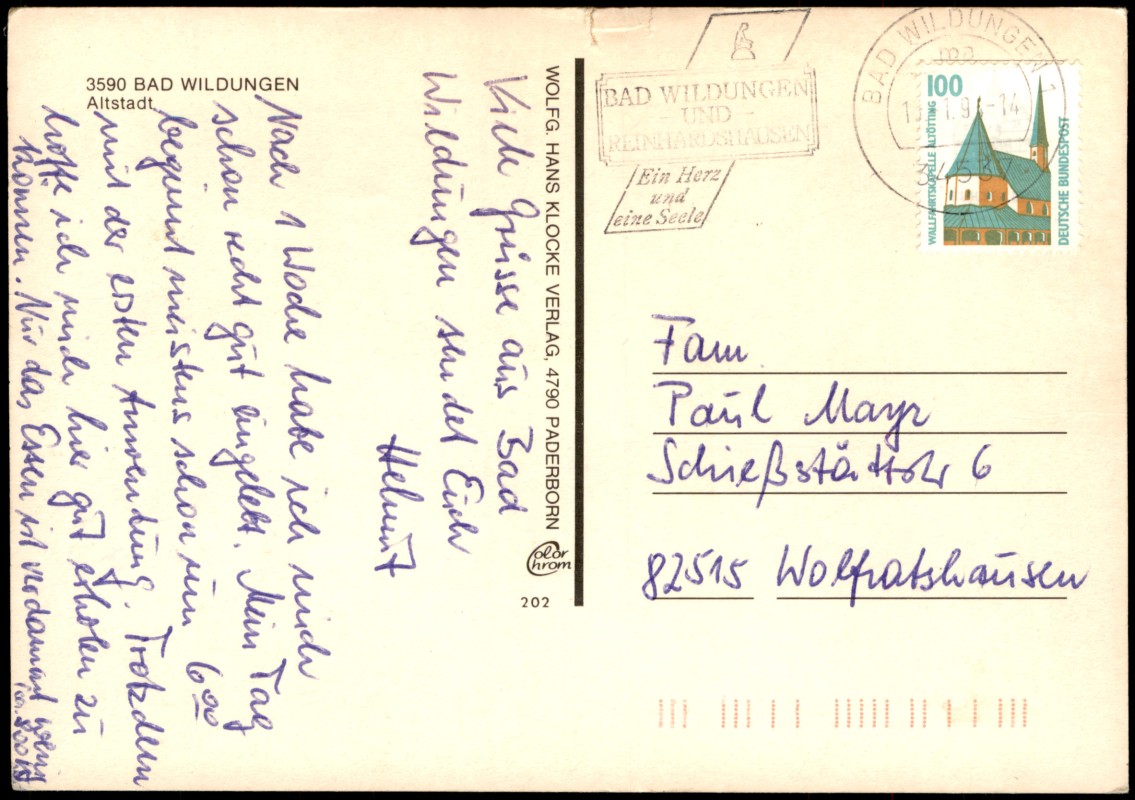 3590 BAD WILDUNGEN
Altstadt
Nach 1 Woche habe ich mich
schon recht gut eingelebt. Mein Tag
beginnt meistens schon um 6⁰⁰
mit der ersten Anwendung. Trotzdem
hoffe ich mich hier gut erholen zu
können. Nur das Essen ist verdammt wenig
Viele Grüsse aus Bad
Wildungen sendet Euch
Helmut
WOLFG. HANS KLOCKE VERLAG, 4790 PADERBORN
Color Chrom
202
BAD WILDUNGEN
- UND -
REINHARDSHAUSEN
Ein Herz
und
eine Seele
BAD WILDUNGEN 1
ma
-14
100
WALLFAHRTSKAPELLE ALTÖTTING
DEUTSCHE BUNDESPOST
Fam
Paul Mayr
Schießstättstr 6
82515 Wolfratshausen